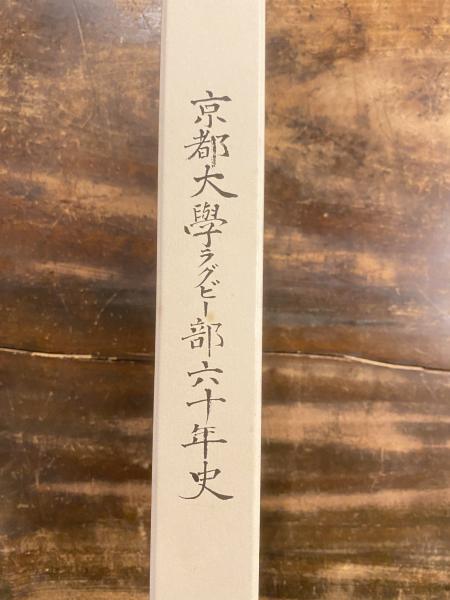 京都大學ラグビー部六十年史